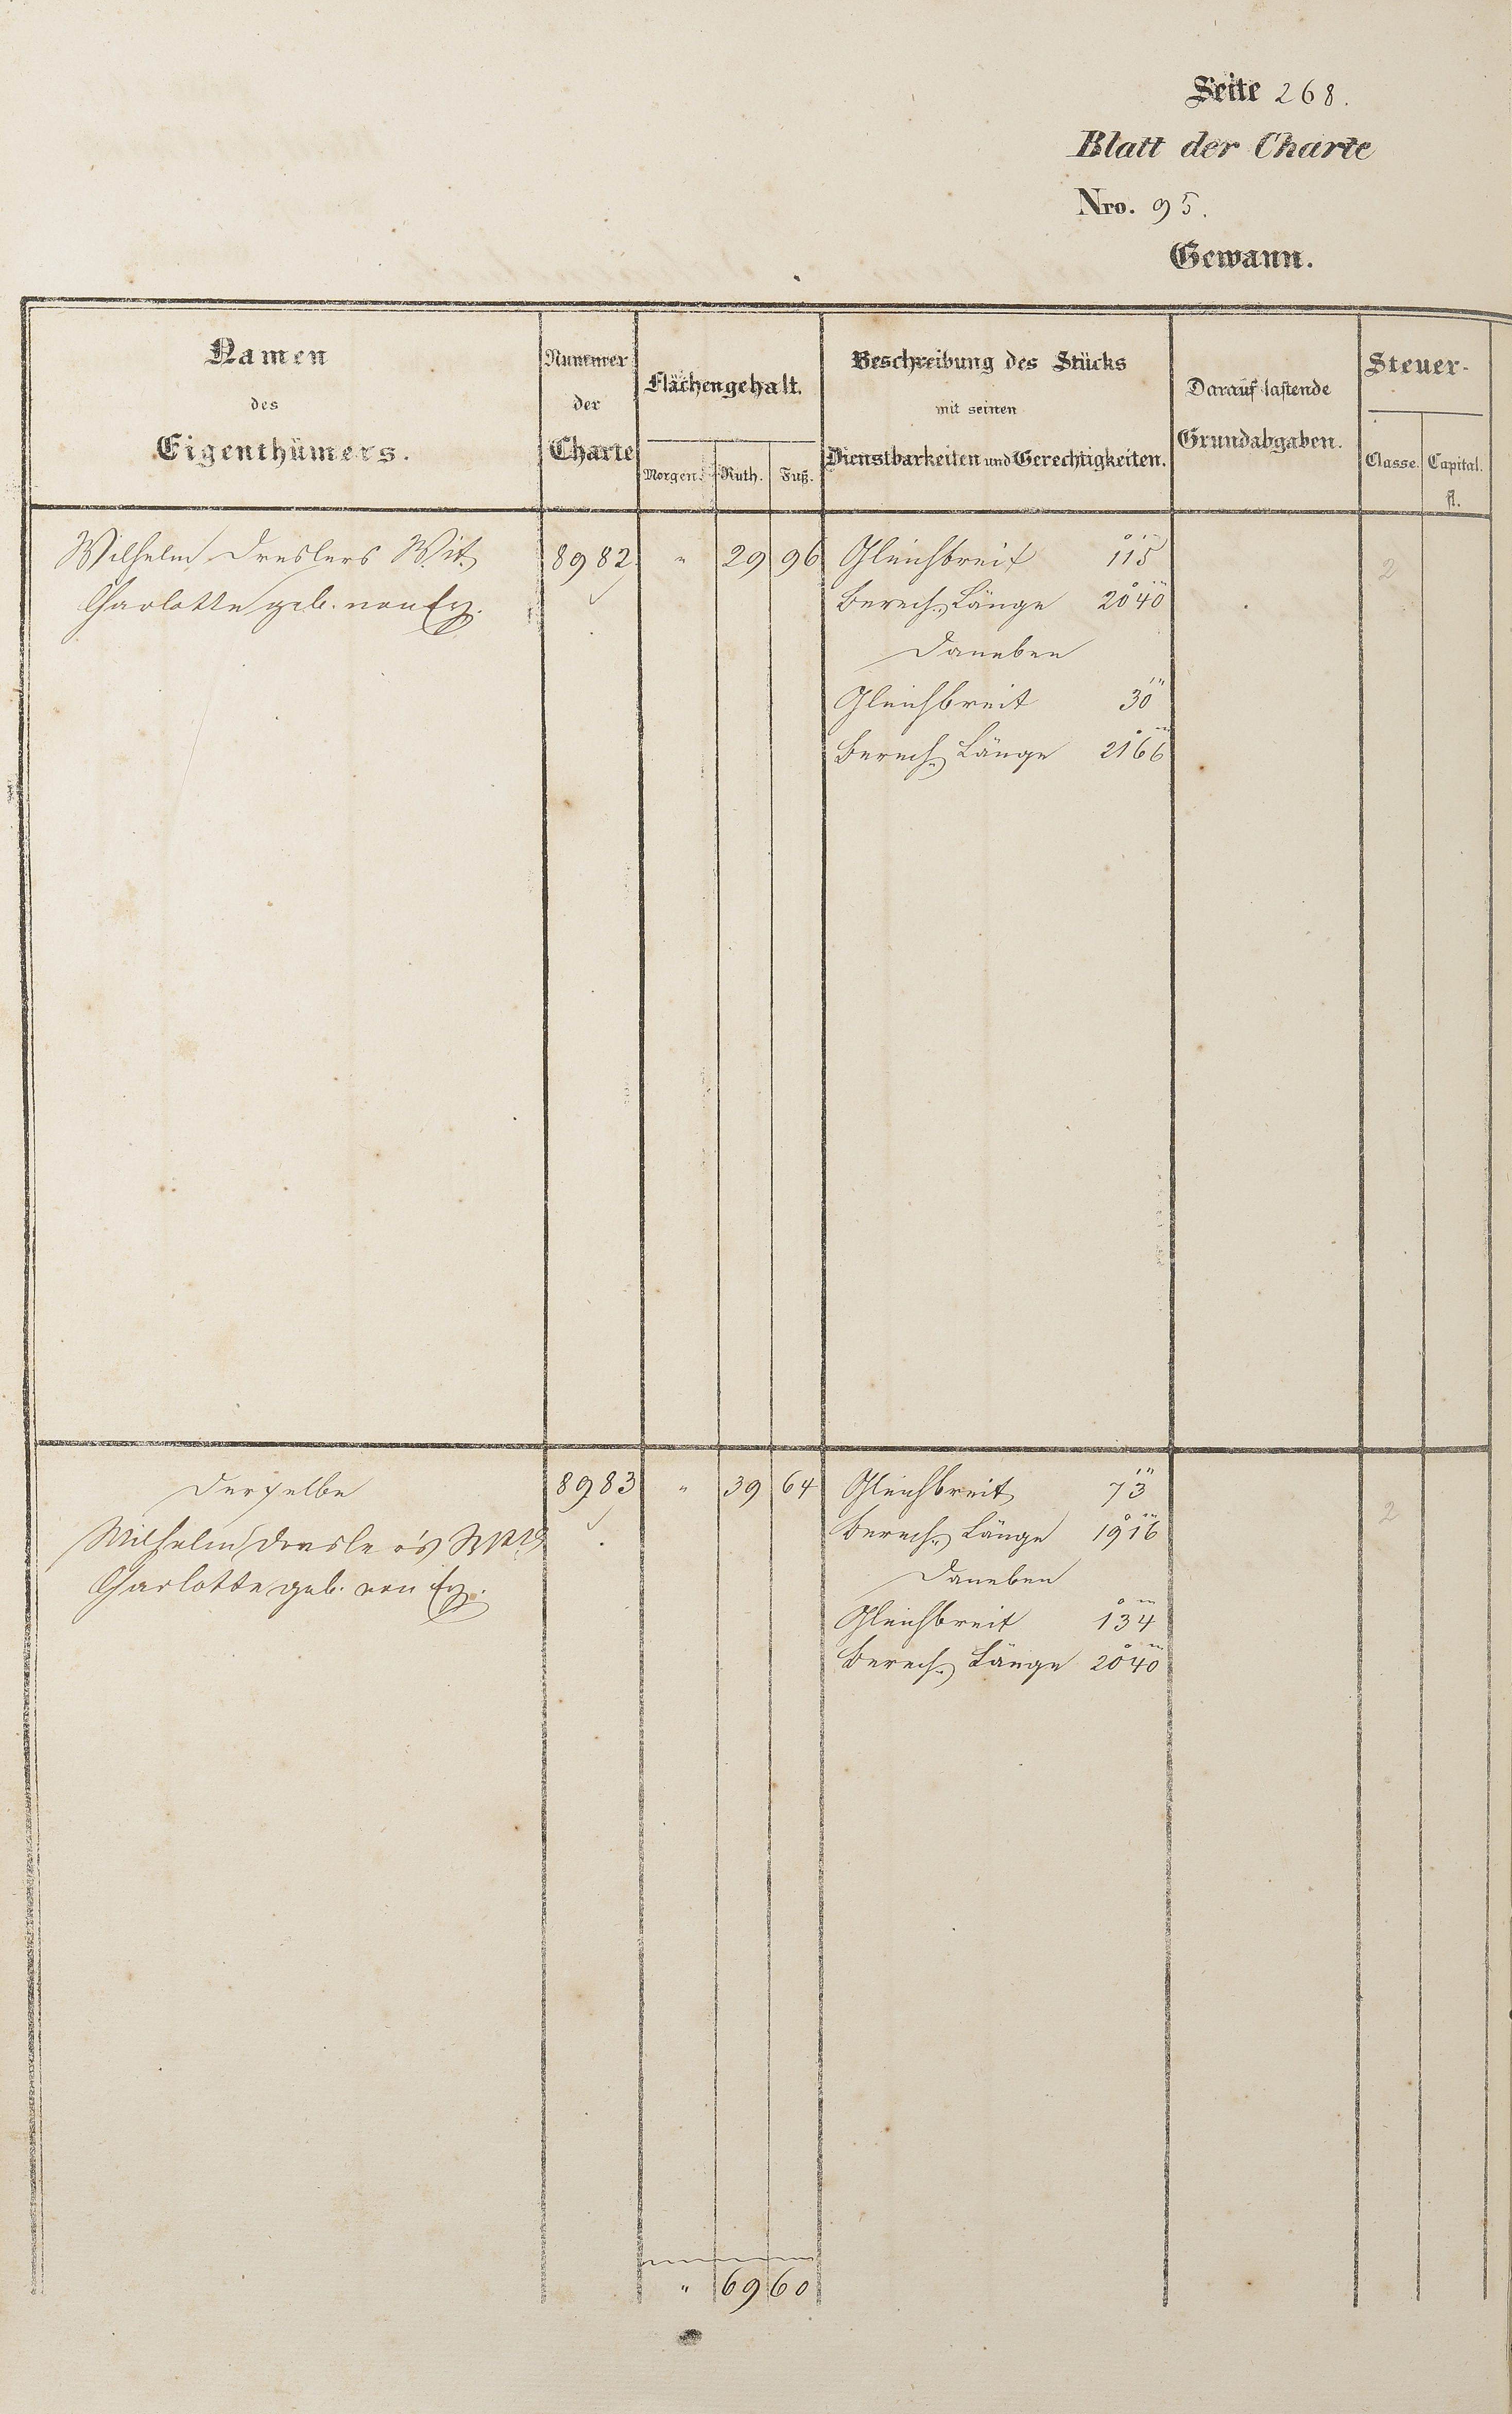 Seite 268.
Blatt der Charte
Nro. 95.
Gewann.
Namen des Eigenthümers.
Nummer der Charte
Flächengehalt.
Morgen. Ruth. Fuß.
Beschreibung des Stücks mit seinen Dienstbarkeiten und Gerechtigkeiten.
Darauf lastende Grundabgaben.
Steuer-
Classe. Capital. fl.
Wilhelm Dreslers Wit. 8982 " 29 96 Gleichbreit 115 2
Charlotte geb. von Ey. Berech. Länge 2040
Daneben
Gleichbreit 30
Berech. Länge 2166
Derselbe 8983 " 39 64 Gleichbreit 73 2
Wilhelm Dresler's Berech. Länge 1916
Charlotte geb. von Ey. Daneben
Gleichbreit 134
Berech. Länge 2040
" 69 60